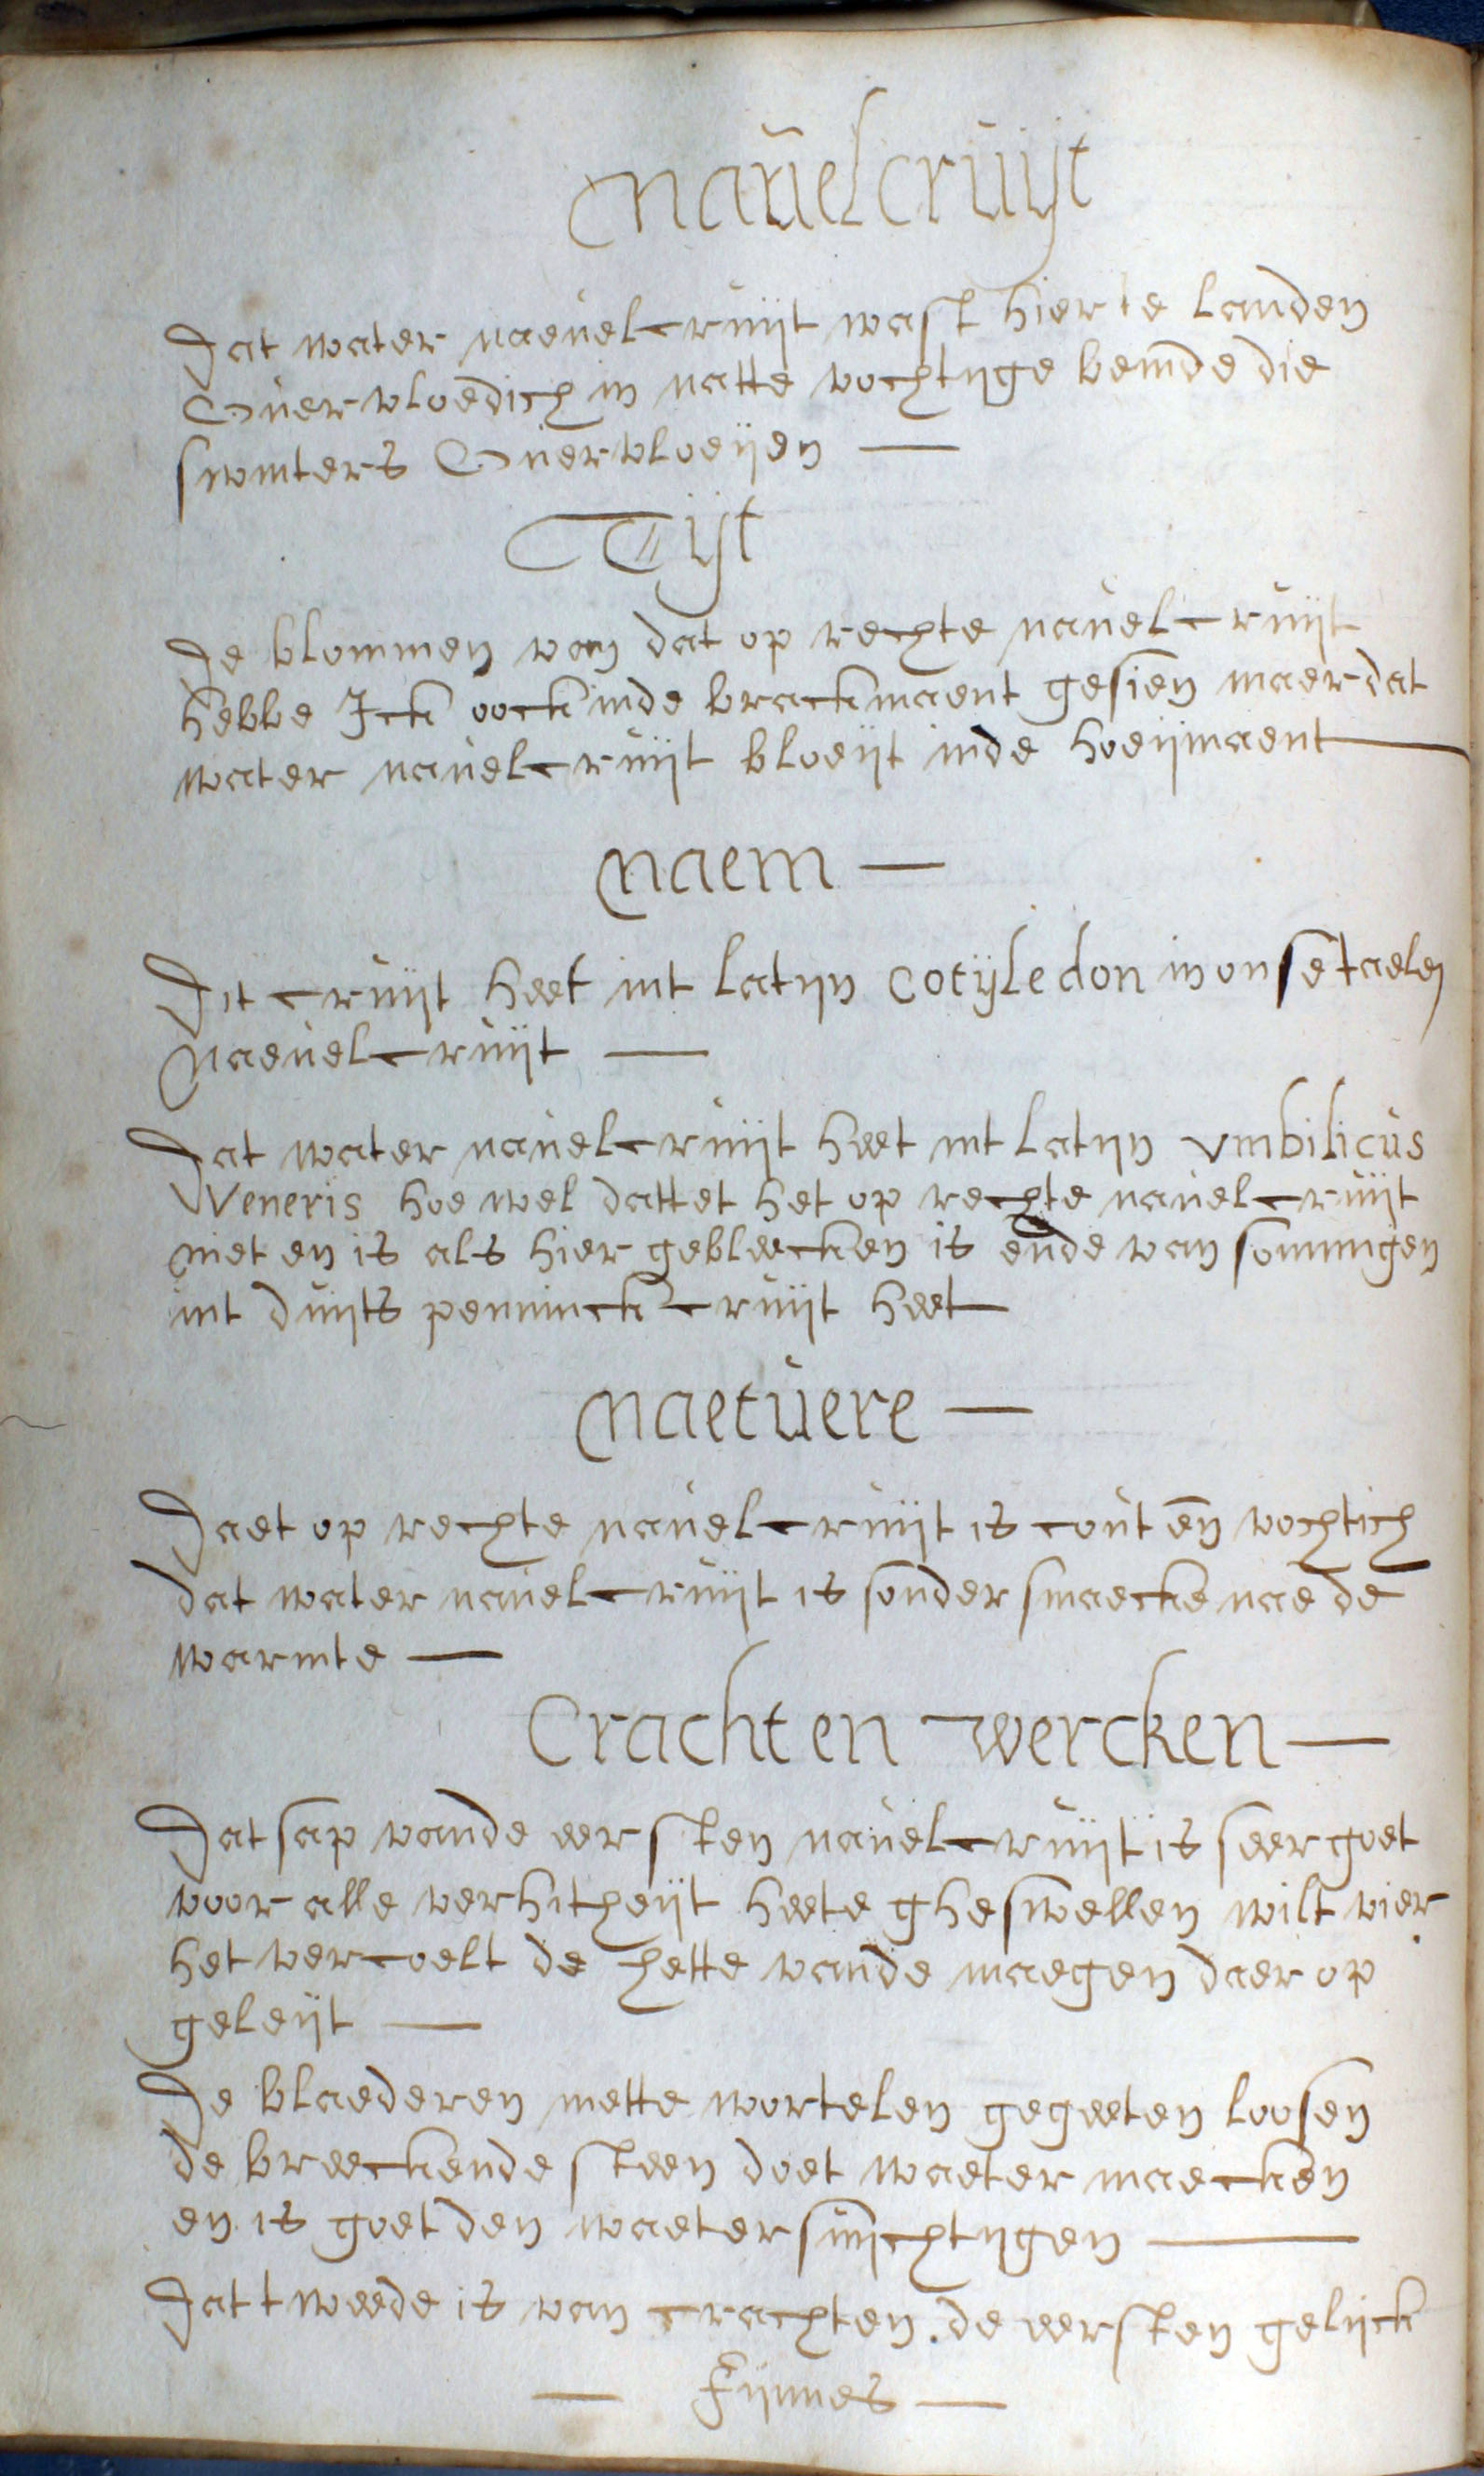 Navelcruijt
Dat water naevelcruijt wast hier te landen
Overvloedich in natte vochtijge beimde die
swinters Overvloeijen —
Tijt
De blommen van dat op rechte navelcruijt
hebbe Ick oock inde brackmaent gesien maer dat
water navelcruijt bloeijt inde hoeijmaent
Naem —
Dit cruijt heet int latijn Cotijledon in onse taelen
Naevelcruijt —
Dat water navelcruijt heet int latijn vmbilicus
Veneris hoe wel dattet het op rechte navelcruijt
niet en is als hier gebleecken is ende van sommigen
int duijts pennincks cruijt heet
Naetuere —
Daet op rechte navelcruijt is cout en̄ vochtich
dat water navelcruijt is sonder smaecke nae de
warmte —
Cracht en wercken —
Dat sap vande eersten navelcruijt is seer goet
voor alle verhitheijt heete gheswellen wilt vier
het vercoelt de hette vande maegen daer op
geleijt —
De blaederen mette wortelen gegeeten loosen
de breeckende steen doet waeter maecken
en is goet den waetersuijchtijgen —
Dat tweede is van crachten de eersten gelijck
— Fijnnes —